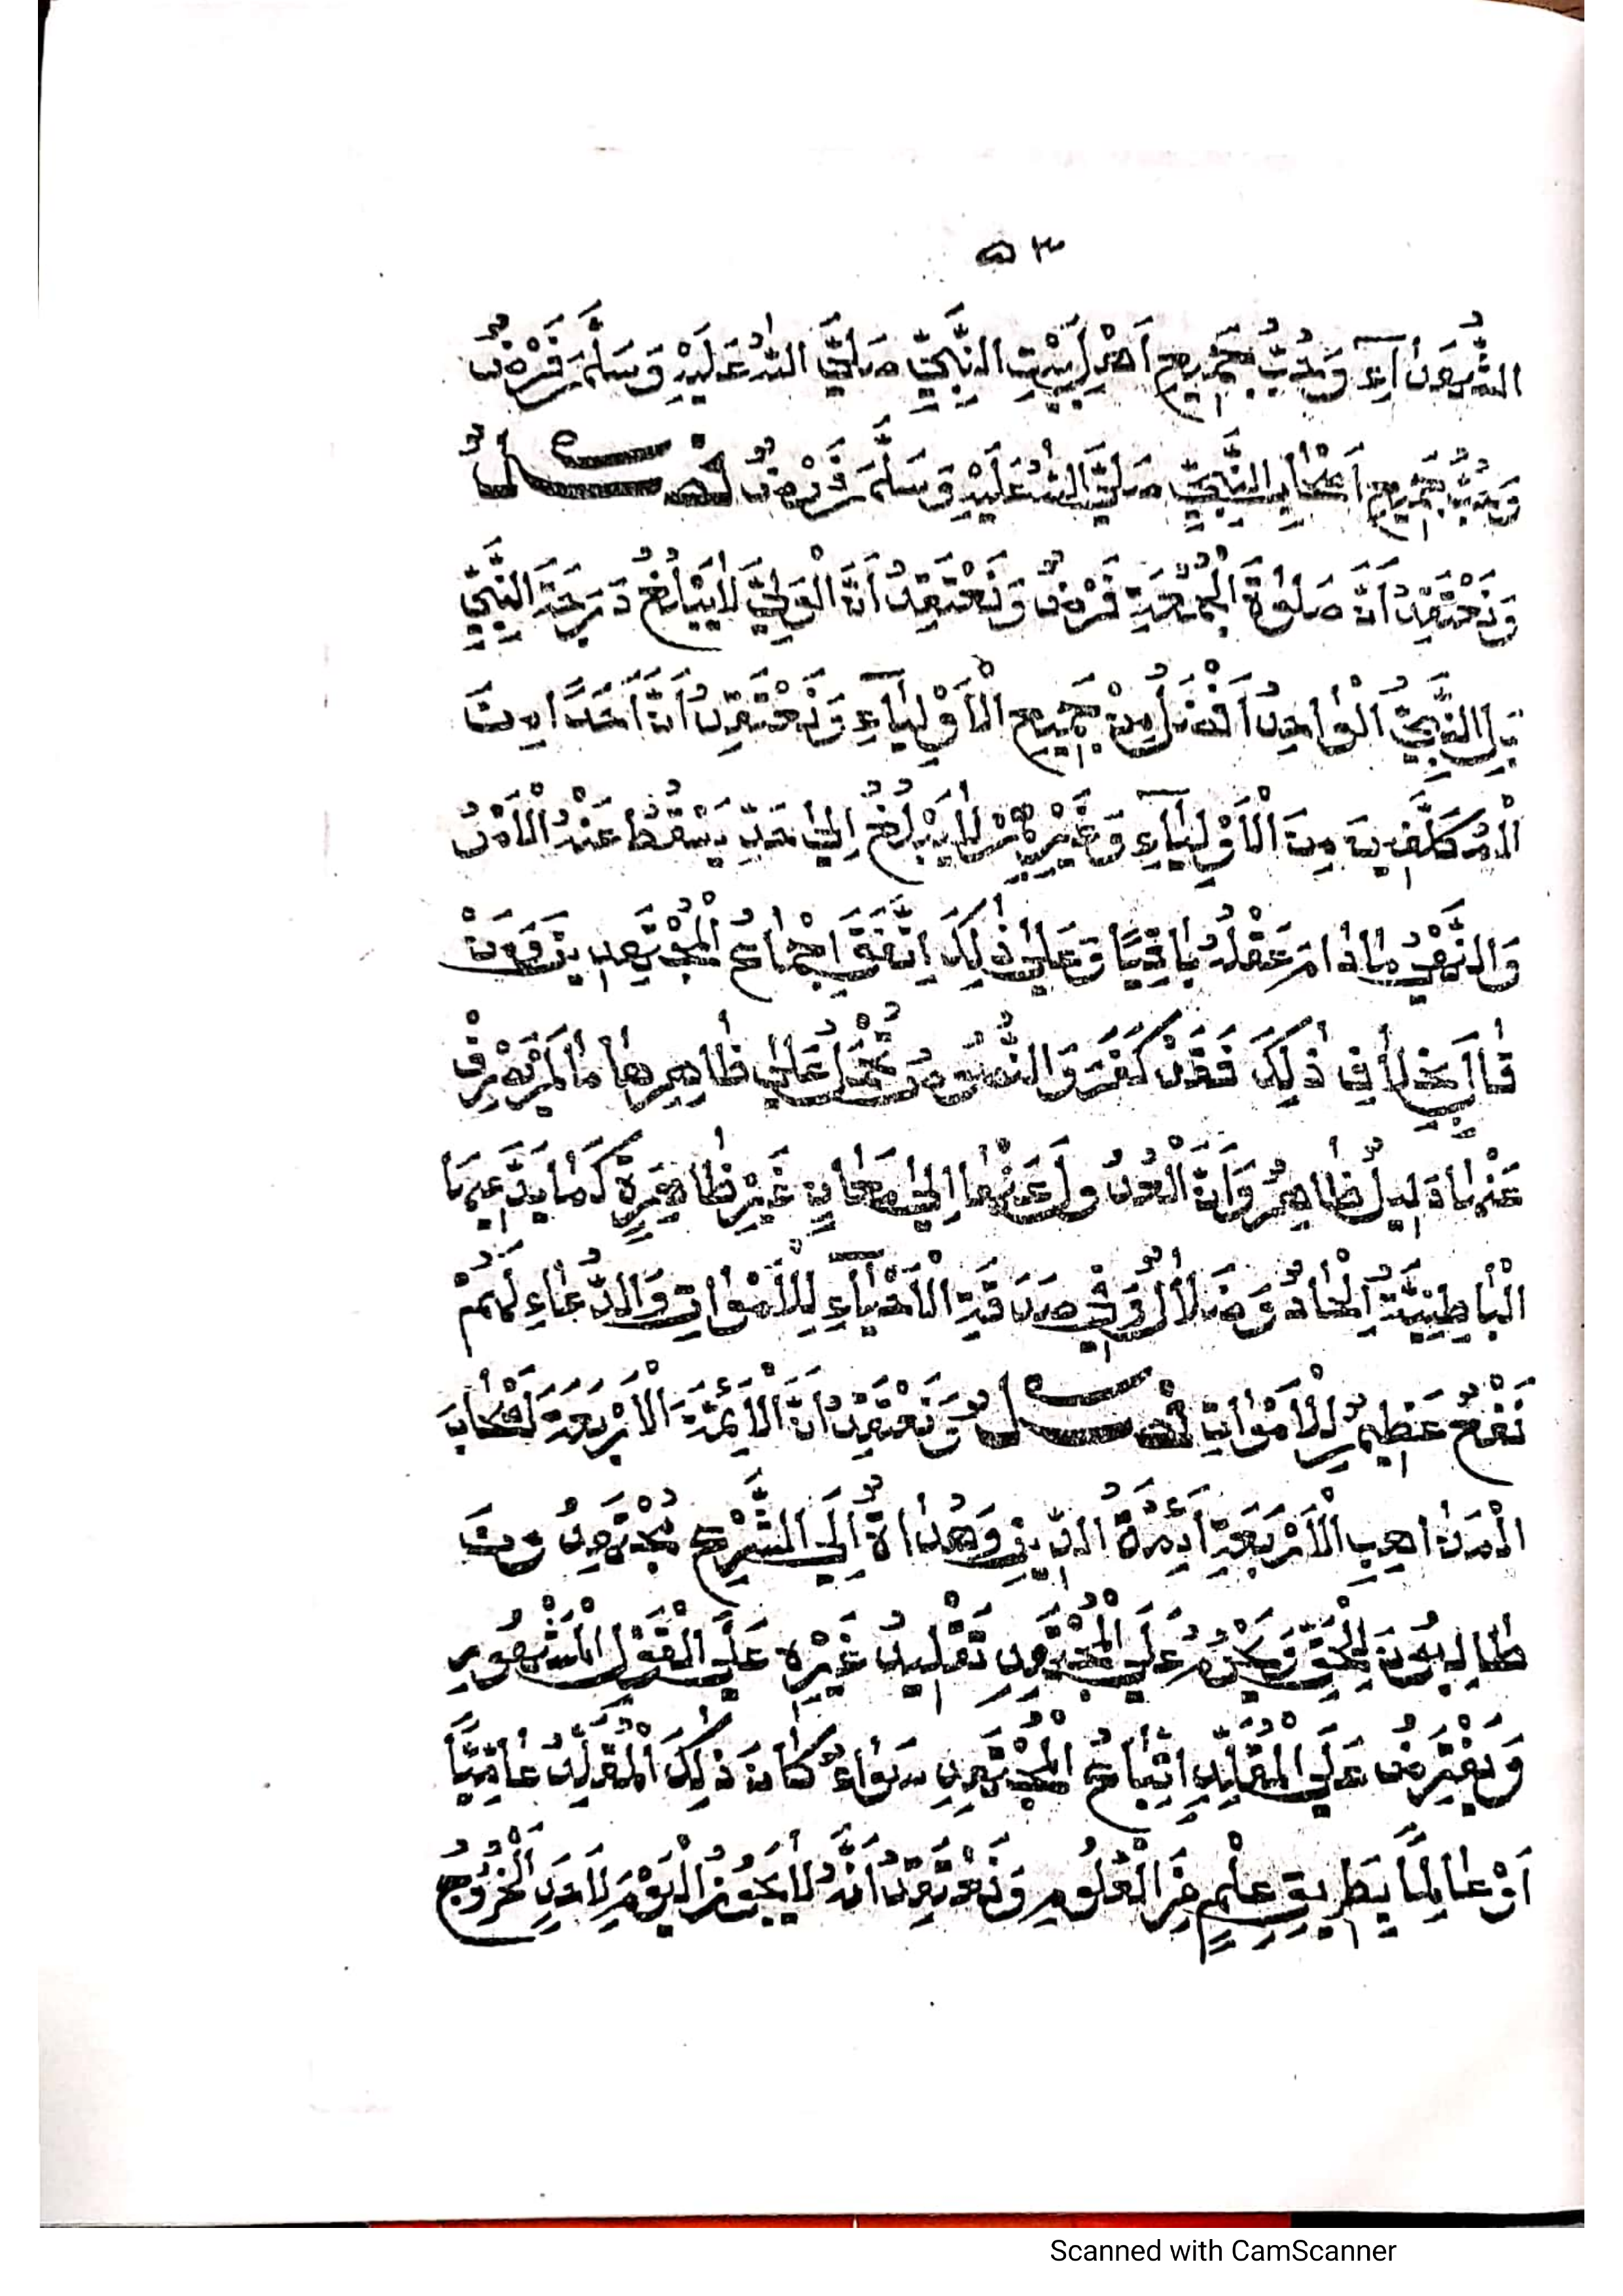 ٥٣
الشُّهَدَآءِ وَحُبُّ جَمِيعِ اَهْلِ بَيْتِ النَّبِيِّ صَلَّي اللهُ عَلَيْهِ وَسَلَّمَ فَرْضٌ
وَحُبُّ جَمِيعِ اَصْحَابِ النَّبِيِّ صَلَّي اللهُ عَلَيْهِ وَسَلَّمَ فَرْضٌ فَصْلٌ
وَنَعْتَقِدُ اَنَّ صَلٰوةَ الْجُمُعَةِ فَرْضٌ وَنَعْتَقِدُ اَنَّ الْوَلِيَّ لَا يَبْلُغُ دَرَجَةَ النَّبِيِّ
بَلِ النَّبِيُّ الْوَاحِدُ اَفْضَلُ مِنْ جَمِيعِ الْاَوْلِيَآءِ وَنَعْتَقِدُ اَنَّ اَحَدًا مِنَ
الْمُكَلَّفِينَ مِنَ الْاَوْلِيَآءِ وَغَيْرِهِمْ لَا يَبْلُغُ اِلٰي حَدٍّ يَسْقُطُ عَنْهُ الْاَمْرُ
وَالنَّهْيُ مَا دَامَ عَقْلُهُ بَاقِيًا وَعَلٰي ذٰلِكَ اِتَّفَقَ اِجْمَاعُ الْمُجْتَهِدِينَ وَمَنْ
قَالَ بِخِلَافِ ذٰلِكَ فَقَدْ كَفَرَ وَالنُّصُوصُ تُحْمَلُ عَلٰي ظَاهِرِهَا مَا لَمْ يَصْرِفْ
عَنْهَا دَلِيلٌ ظَاهِرٌ وَاَنَّ الْعُدُولَ عَنْهَا اِلٰي مَعَانٍ غَيْرِ ظَاهِرَةٍ كَمَا يَدَّعِيهَا
الْبَاطِنِيَّةُ اِلْحَادٌ وَضَلَالٌ وَفِي صَدَقَةِ الْاَحْيَآءِ لِلْاَمْوَاتِ وَالدُّعَاءِ لَهُمْ
نَفْعٌ عَظِيمٌ لِلْاَمْوَاتِ فَصْلٌ وَنَعْتَقِدُ اَنَّ الْاَئِمَّةَ الْاَرْبَعَةَ اَصْحَابَ
الْمَذَاهِبِ الْاَرْبَعَةِ اَئِمَّةُ الدِّينِ وَهُدَاةٌ اِلَي الشَّرْعِ مُجْتَهِدُونَ
طَالِبُونَ لِلْحَقِّ وَيَحْرُمُ عَلَي الْمُجْتَهِدِ تَقْلِيدُ غَيْرِهِ عَلَي الْقَوْلِ الْمَشْهُورِ
وَيَفْتَرِضُ عَلَي الْمُقَلِّدِ اِتِّبَاعُ الْمُجْتَهِدِ سَوَاءٌ كَانَ ذٰلِكَ الْمُقَلِّدُ عَامِيًّا
اَوْ عَالِمًا بِطَرِيقِ عِلْمٍ مِنَ الْعُلُومِ وَنَعْتَقِدُ اَنَّهُ لَا يَجُوزُ الْيَوْمَ لِاَحَدٍ الْخُرُوجُ
Scanned with CamScanner